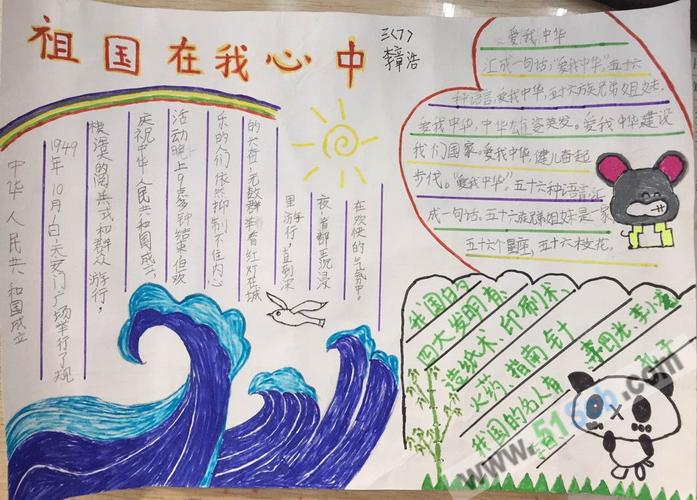 祖国在我心中
三(7)
李章浩
中华人民共和国成立
1949年10月1日天安门广场举行了规
模浩大的阅兵式和群众游行，
庆祝中华人民共和国成立，
活动晚上9点多钟结束但欢
乐的人们依然抑制不住内心
无数群举着红灯在城
里游行，直到深
夜，首都还沉浸
在欢快的气氛中。
爱我中华
汇成一句话，"爱我中华"五十六
种语言，爱我中华，五十六族兄弟姐妹，
爱我中华，中华雄姿英发。爱我中华建设
我们国家。爱我中华，健儿奋起
步伐。"爱我中华"。五十六种语言，汇
成一句话。五十六族兄弟姐妹是一家
五十六个星座，五十六枝花。
我国的
四大发明有
造纸术、印刷术、
火药 指南针
我国的名人有
李四光、李小龙
孔子